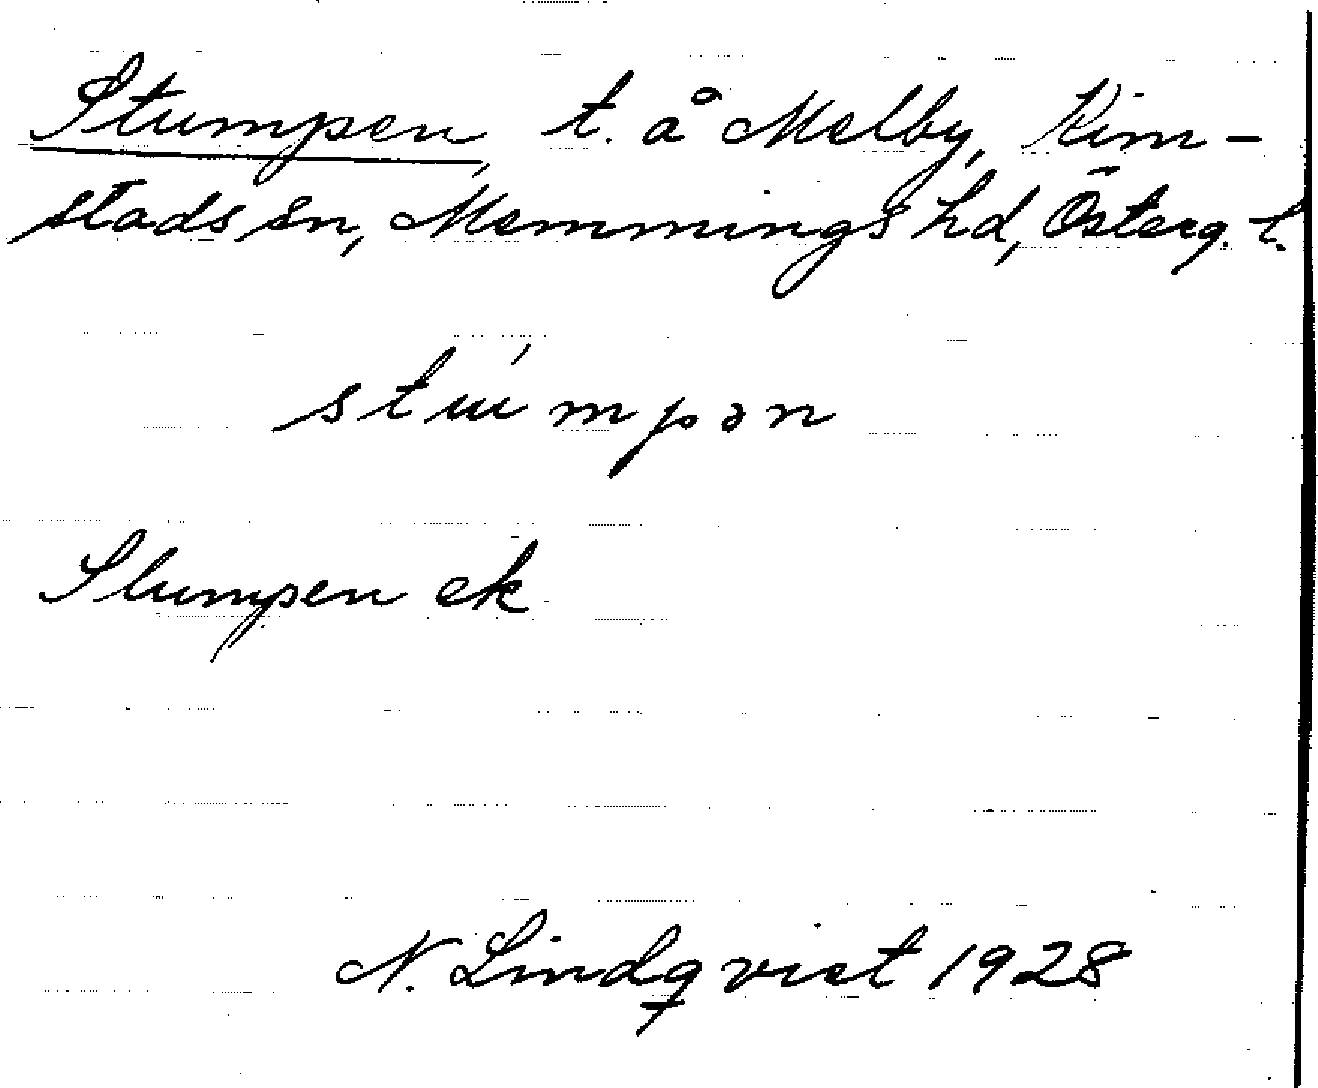 Stumpen, t. å Melby, Kim-
stads sn, Memmings hd, Österg. l.
stúmpən
Slumpen ek
N. Lindqvist 1928